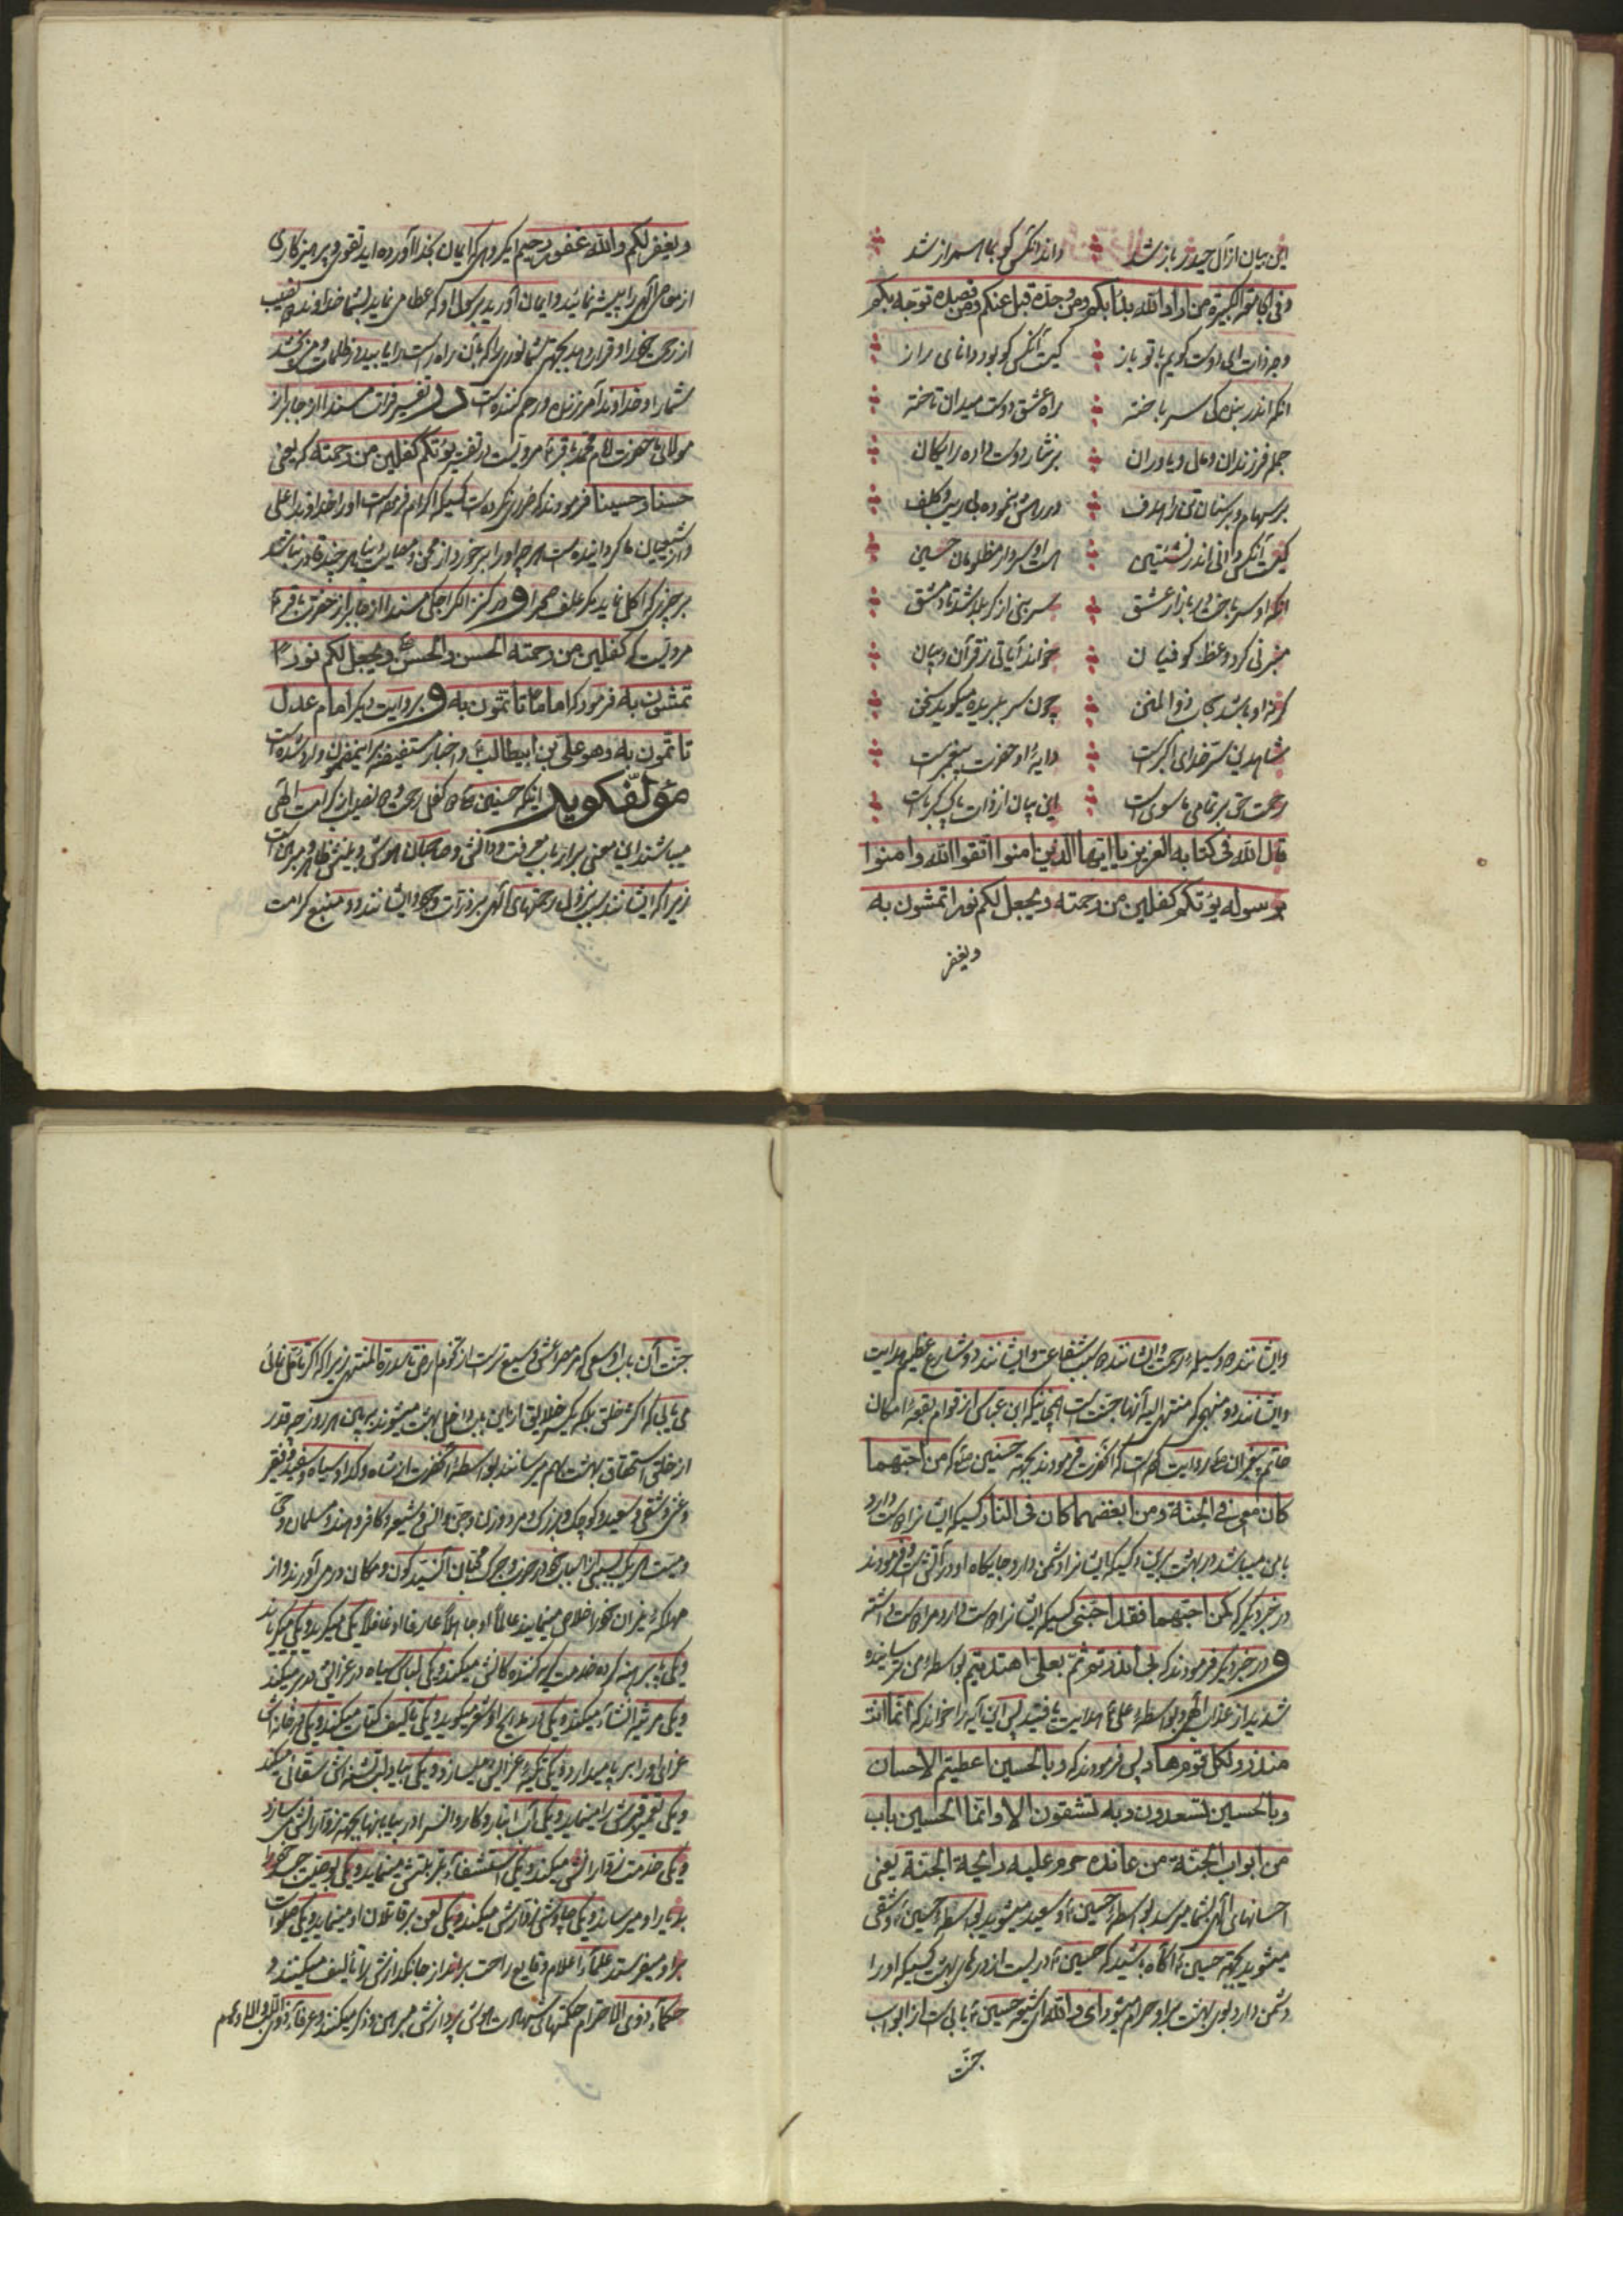 این بیان از آل حیدر باز شد داند آنکس کو بما همراز شد
وفی الجامعة الکبیرة من اراد الله بدأ بکم ومن وحده قبل عنکم ومن قصده توجه بکم
وجه ذات ای دوست گویم با تو باز کیست آنکس کو بود دانای راز
آنکه اندر بندگی سر باخته براه عشق دوست میدان تاخته
جمله فرزندان و مال و یاوران بر نثار دوست داده رایگان
بر سهام و بر سنان تن را هدف در رهش بنموده بی ریب و کلف
کیست آنکس دانی اندر نشئتین هست او سردار مظلومان حسین
آنکه او سر باخت در بازار عشق سر بنی از کربلا شد تا دمشق
منبر نی کرد و وعظ کوفیان خواند آیاتی ز قرآن و بیان
گر نه او باشد بجان ذو المنن چون سر ببریده میگوید سخن
شاهد این ستر خدای اکبر است دایهٔ او حضرت پیغمبر است
رحمت حق بر تمامی ماسوی است این بیان از ذات پاک کبریاست
قال الله فی کتابه العزیز یا ایها الذین امنوا اتقوا الله وامنوا
برسوله یؤتکم کفلین من رحمته ویجعل لکم نورا تمشون به
ویغفر
ویغفر لکم والله غفور رحیم ایگروهی که ایمان بخدا آورده اید تقوی و پرهیزکاری
از معاصی الهی را پیشه نمائید و ایمان آورید برسول او که عطا می نماید بشما خداوند دو نصیب
از رحمت خود را و قرار دهد بجهة شما نوری را که بآن راه راست را یابید در ظلمات و می بخشد
شما را و خداوند آمرزنده و رحم کننده است در تفسیر فرات مسندا از جابر از
مولانا حضرت امام محمد باقر ع مرویست در تفسیر یؤتکم کفلین من رحمته که یعنی
حسنا وحسینا فرمودند که ضرر نکرده است کسیکه اکرام فرموده است او را خداوند اعلی
واز شیعیان ما گردانیده است هر چه او را برخورد از محن و مصایب دنیا هر چند قادر نباشد
بر چیزی که اکل نماید مگر علف صحرا و در کنز الکراجکی مسندا از جابر از حضرت باقر ع
مرویست که کفلین من رحمته الحسن والحسین ع ویجعل لکم نورا
تمشون به فرمود که اماما تأتمون به و بروایت دیگر امام عدل
تأتمون به وهو علی بن ابیطالب ع و اخبار مستفیضه بر اینمضمون وارد شده است
مؤلف گوید اینکه حسنین ع دو کفل رحمت و دو نصیب از کرامت الهی
میباشند این معنی بر ارباب معرفت و دانش و صاحبان هوش و بینش ظاهر و مبرهن است
زیرا که ایشانند سبب نزول رحمتهای الهی بر ذرات وجود و ایشانند دو منبع کرامت
وایشانند دو وسیلهٔ رحمت و ایشانند دو سبب شفاعت و ایشانند دو شارع عظیم هدایت
وایشانند دو منهجی که منتهی الیه آنها جنت است همچنانکه ابن عباس از قوام بقعهٔ امکان
خاتم پیغمبران ص روایت کرده است که آنحضرت فرمودند بجهة حسنین ع که من احبهما
کان معی فی الجنة ومن ابغضهما کان فی النار کسیکه ایشانرا دوست دارد
با من میباشد در بهشت برین و کسیکه ایشانرا دشمن دارد جایگاه او در آتش است و فرمودند
در خبر دیگر که من احبهما فقد احبنی کسیکه ایشانرا دوست دارد مرا دوست داشته
و در خبر دیگر فرمودند که بی انذرتم ثم بعلی اهتدیتم بواسطهٔ من ترسانیده
شدید از عذاب الهی و بواسطهٔ علی ع هدایت یافتید پس این آیه را خواند که انما انت
منذر ولکل قوم هاد پس فرمودند که وبالحسین اعطیتم الاحسان
وبالحسین تسعدون وبه تشقون الا وانما الحسین باب
من ابواب الجنة من عانده حرم علیه رایحة الجنة یعنی
احسانهای الهی بشما میرسد بواسطهٔ حسین ع و سعید میشوید بواسطهٔ حسین ع و شقی
میشوید بجهة حسین ع آگاه باشید که حسین ع دریست از درهای بهشت کسیکه او را
دشمن دارد بوی بهشت بر او حرام میشود ای والله ای شیعه حسین ع بابی است از ابواب
جنت
جنت آن باب اوسعی که هر مصراعش وسیع تر است از تخوم ارض تا سدرة المنتهی زیرا که اگر تأمل نمائی
می یابی که اکثر خلق بلکه یکسر خلایق از این باب داخل بهشت میشوند ببین هر روز چه قدر
از خلق استحقاق بهشت بهم میرسانند بواسطهٔ آنحضرت از شاه و گدا و سیاه و سفید و فقیر
و غنی و شقی و سعید و کوچک و بزرگ و مرد و زن و جن و انس و شیعه و کافر و هندو و مسلمان و حی
و میت هر یک بسببی از اسباب خود را
مهلکهٔ نیران خود را خلاص مینمایند عالماً او جاهلاً عارفا او غافلاً یکی میگرید و یکی میگریاند
و یکی پا برهنه کرده خدمت گریه کنندگانش میکند و یکی لباس سیاه در عزایش در بر میکند
و یکی مرثیه انشاء میکند و یکی در مدایح او شعر میگوید و یکی تألیف کتاب میکند و یکی در خانه اش
عزای او را بر پا میدارد و یکی تکیهٔ عزایش میسازد و یکی بیاد لب تشنه اش سقائی میکند
و یکی تعمیر قبرش را مینماید و یکی آب انبار و کاروانسرا در بیابانها بجهة زوارانش می سازد
و یکی خدمت زوارانش میکند و یکی استشفاء بتربتش مینماید و یکی بوصیت جسد خود را
بدیار او میرساند و یکی چاوشی زوارش میکند و یکی لعن بر قاتلان او مینماید و یکی صلوات
بر او میفرستد علماء اعلام وقایع راحت برانداز جانگدازش را تألیف میکنند و
حکماء ذوی الاحترام حکمتهای شهادت